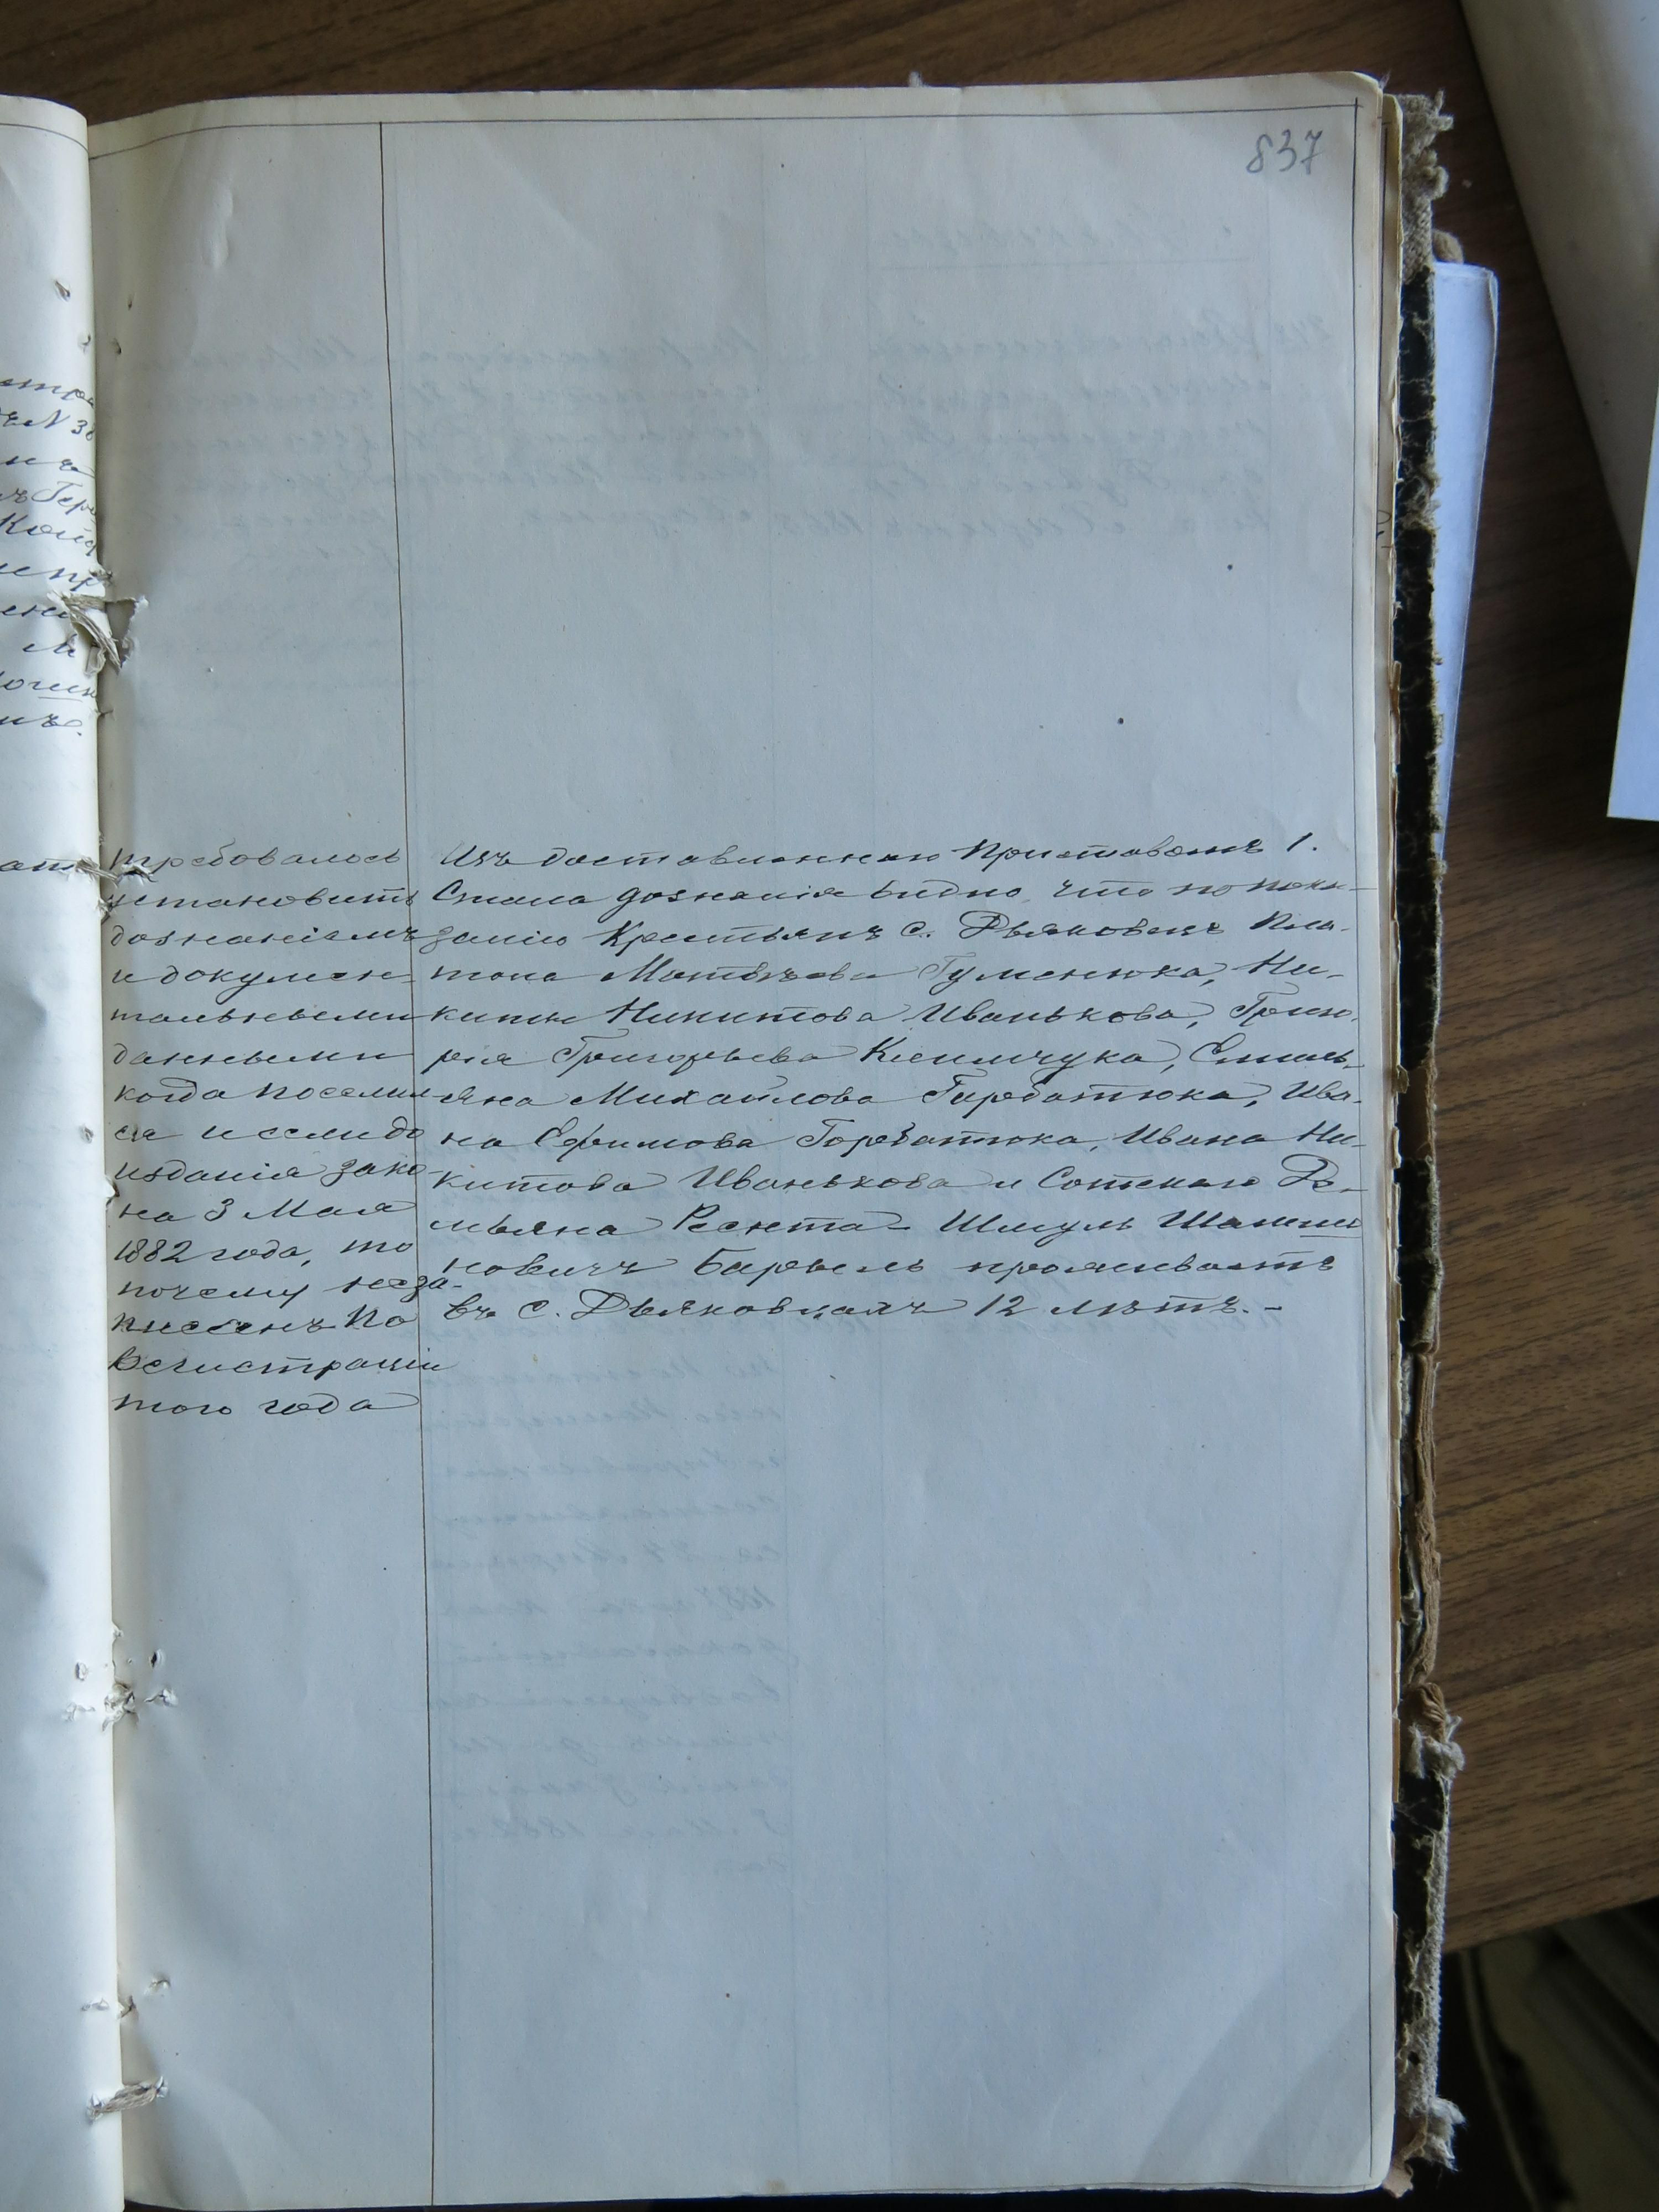 837
требовалось
установить
дознаніемъ
и докумен-
тальными
данными
когда посели
ся и если до
изданія зако-
на 3 Мая
1882 года, то
почему неза-
писанъ по
регистраціи
того года
Изъ доставленнаго Приставомъ 1.
Стана дознанія видно, что по пока-
занію Крестьянъ с. Дьяковецъ Пла-
тона Матвѣева Гуменюка, Ни-
киты Никитова Иванькова, Григо-
рія Григорьева Климчука, Емель-
яна Михайлова Горбатюка, Ива-
на Ефимова Горбатюка, Ивана Ни-
китова Иванькова и Сотскаго Де-
мьяна Шмуль
новичъ проживаетъ
въ с. Дьяковцахъ 12 лѣтъ. -